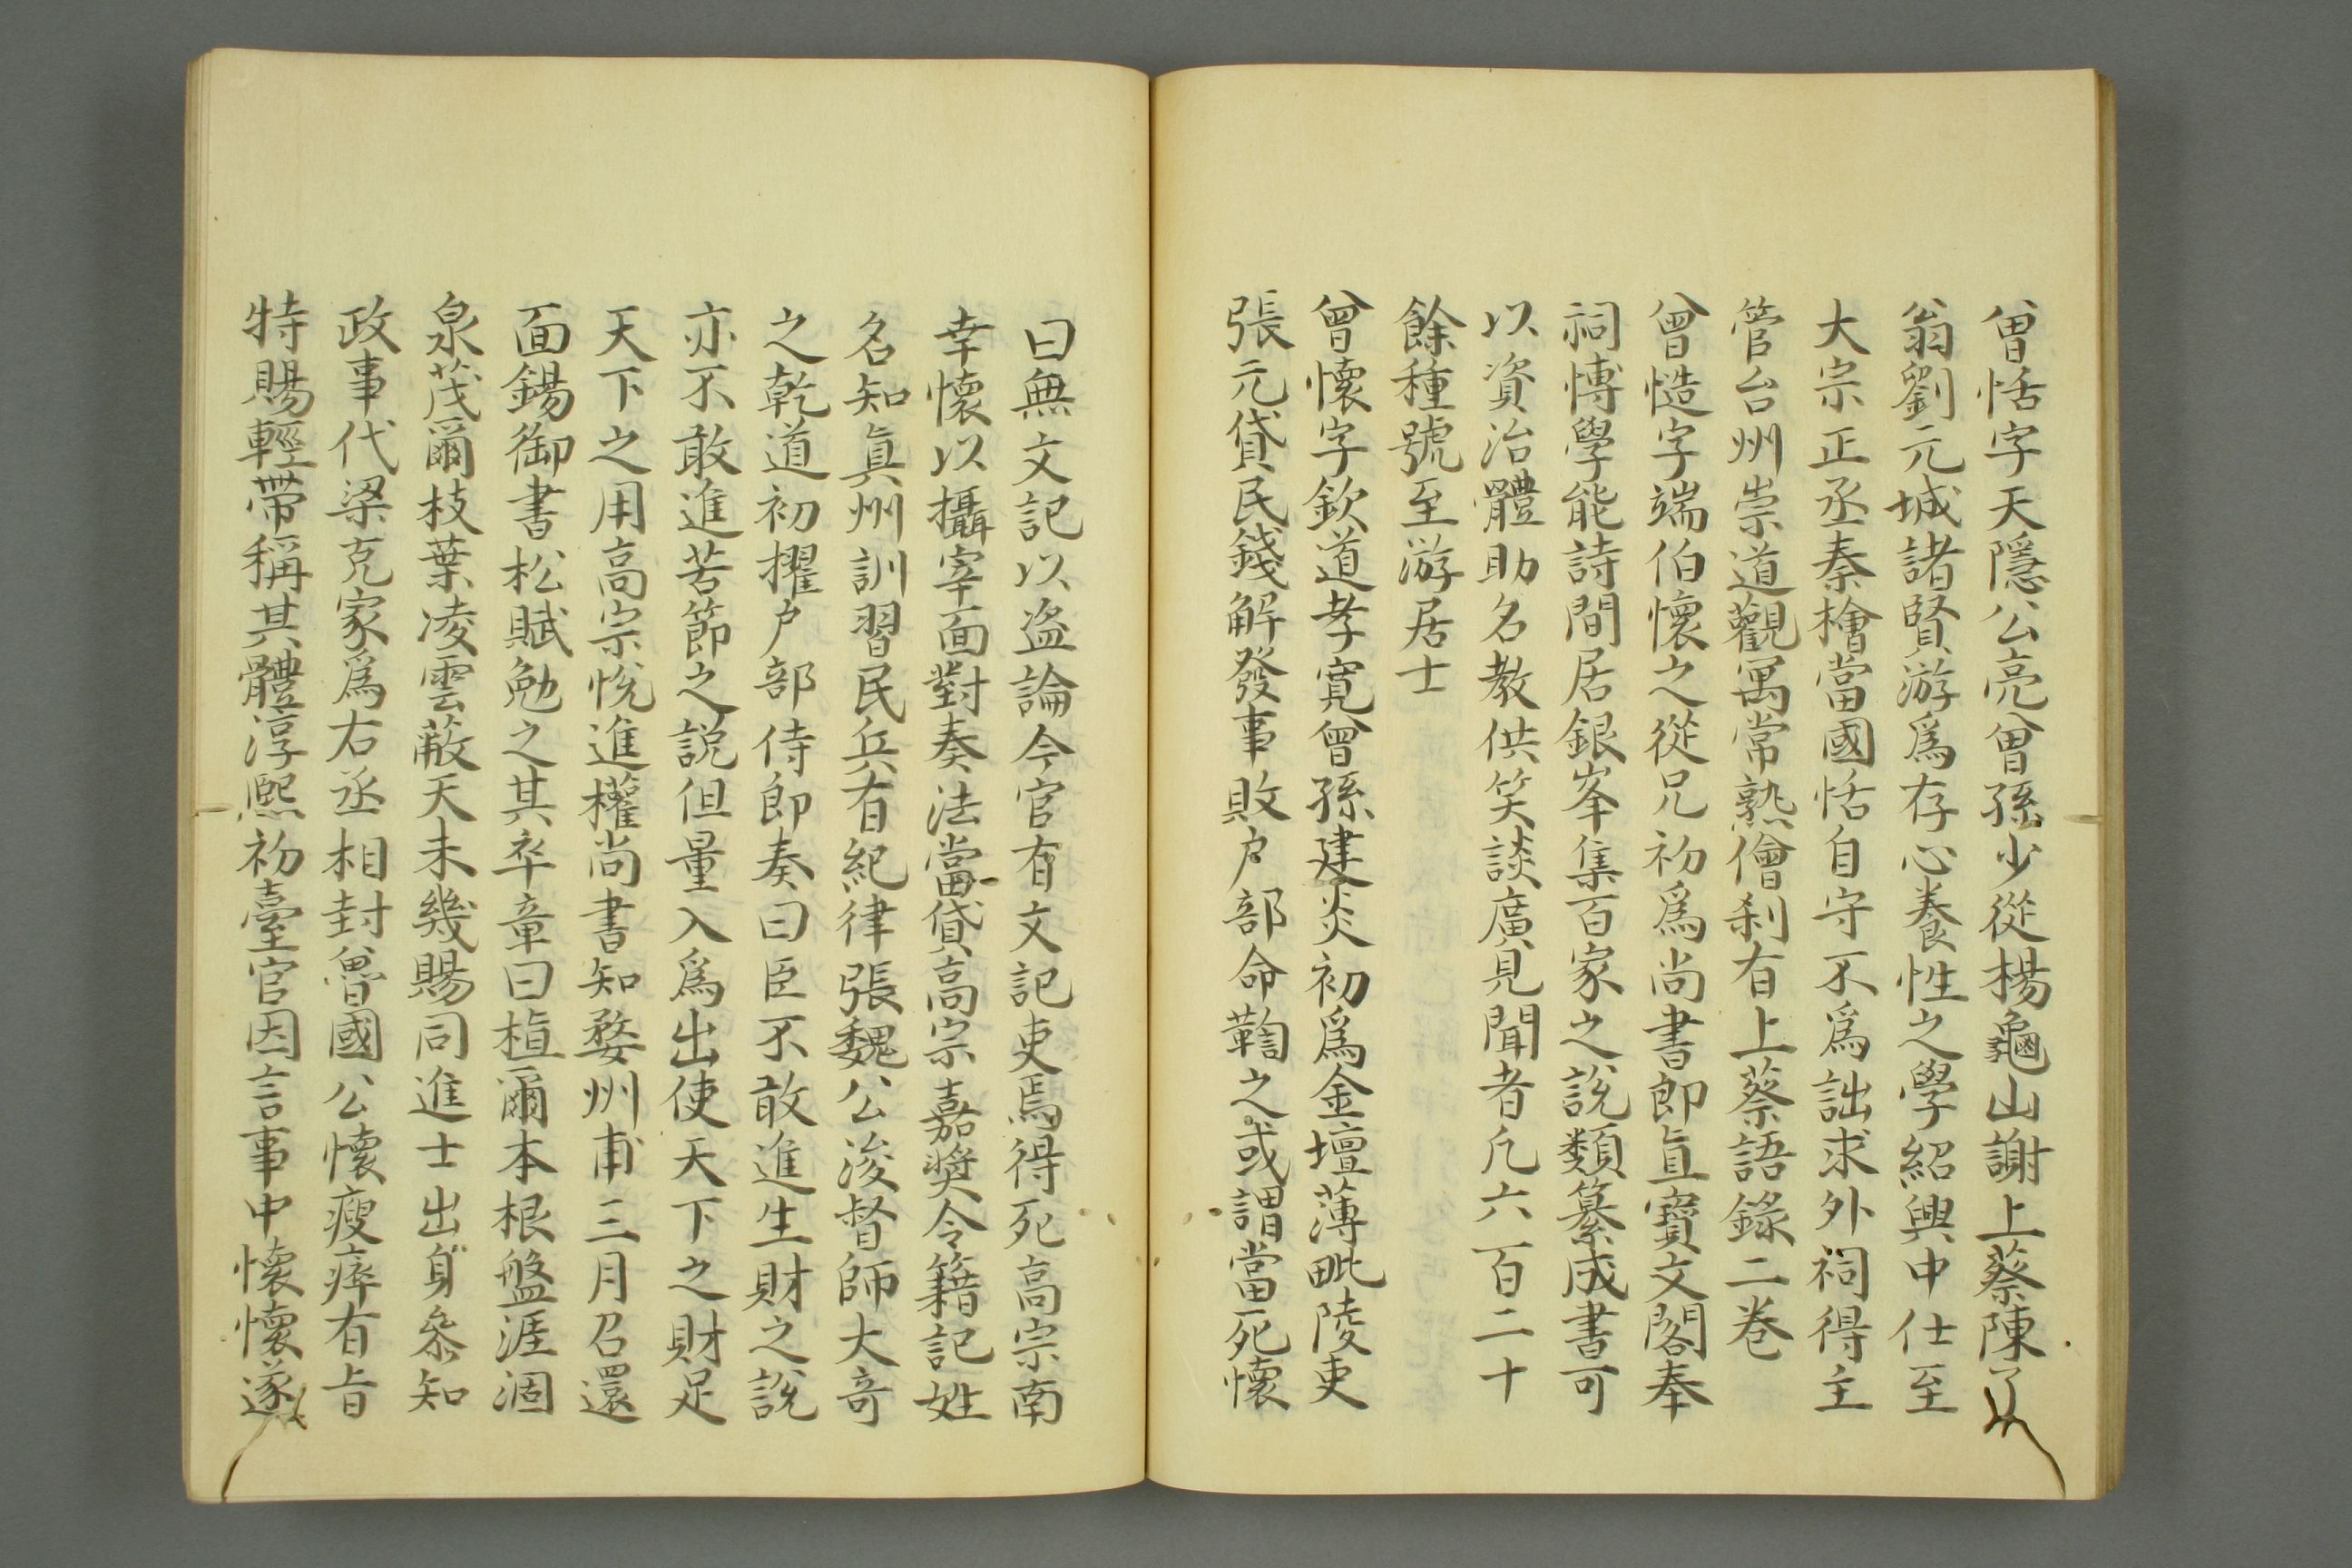 曾恬字天隱公亮曾孫少從楊龜山謝上蔡陳了
翁劉元城諸賢游爲存心養性之學紹興中仕至
大宗正丞秦檜當國恬自守不爲詘求外祠得主
管台州崇道觀寓常熟僧刹有上蔡語錄二巻
曾慥字端伯懷之從兄初爲尚書郎直寶文閣奉
祠博學能詩間居銀峯集百家之說類纂成書可
以資治體助名教供笑談廣見聞者凡六百二十
餘種號至游居士
曾懷字欽道孝寬曾孫建炎初爲金壇薄毗陵吏
張元貸民錢解發事敗户部命鞫之或謂當死懷
曰無文記以盗論今官有文記吏焉得死高宗南
幸懷以攝宰面對奏法當貸高宗嘉奬令籍記姓
名知真州訓習民兵有紀律張魏公浚督師大竒
之乾道初擢户部侍郎奏曰臣不敢進生財之說
亦不敢進苦節之說但量入爲出使天下之財足
天下之用高宗悅進權尚書知婺州甫三月召還
面錫御書松賦勉之其卒章曰植爾本根盤涯涸
泉茂爾枝葉凌雲蔽天未幾賜同進士出身叅知
政事代梁克家爲右丞相封魯國公懷瘦瘁有旨
特賜輕帶稱其體淳熙初臺官因言事中懷懷遂